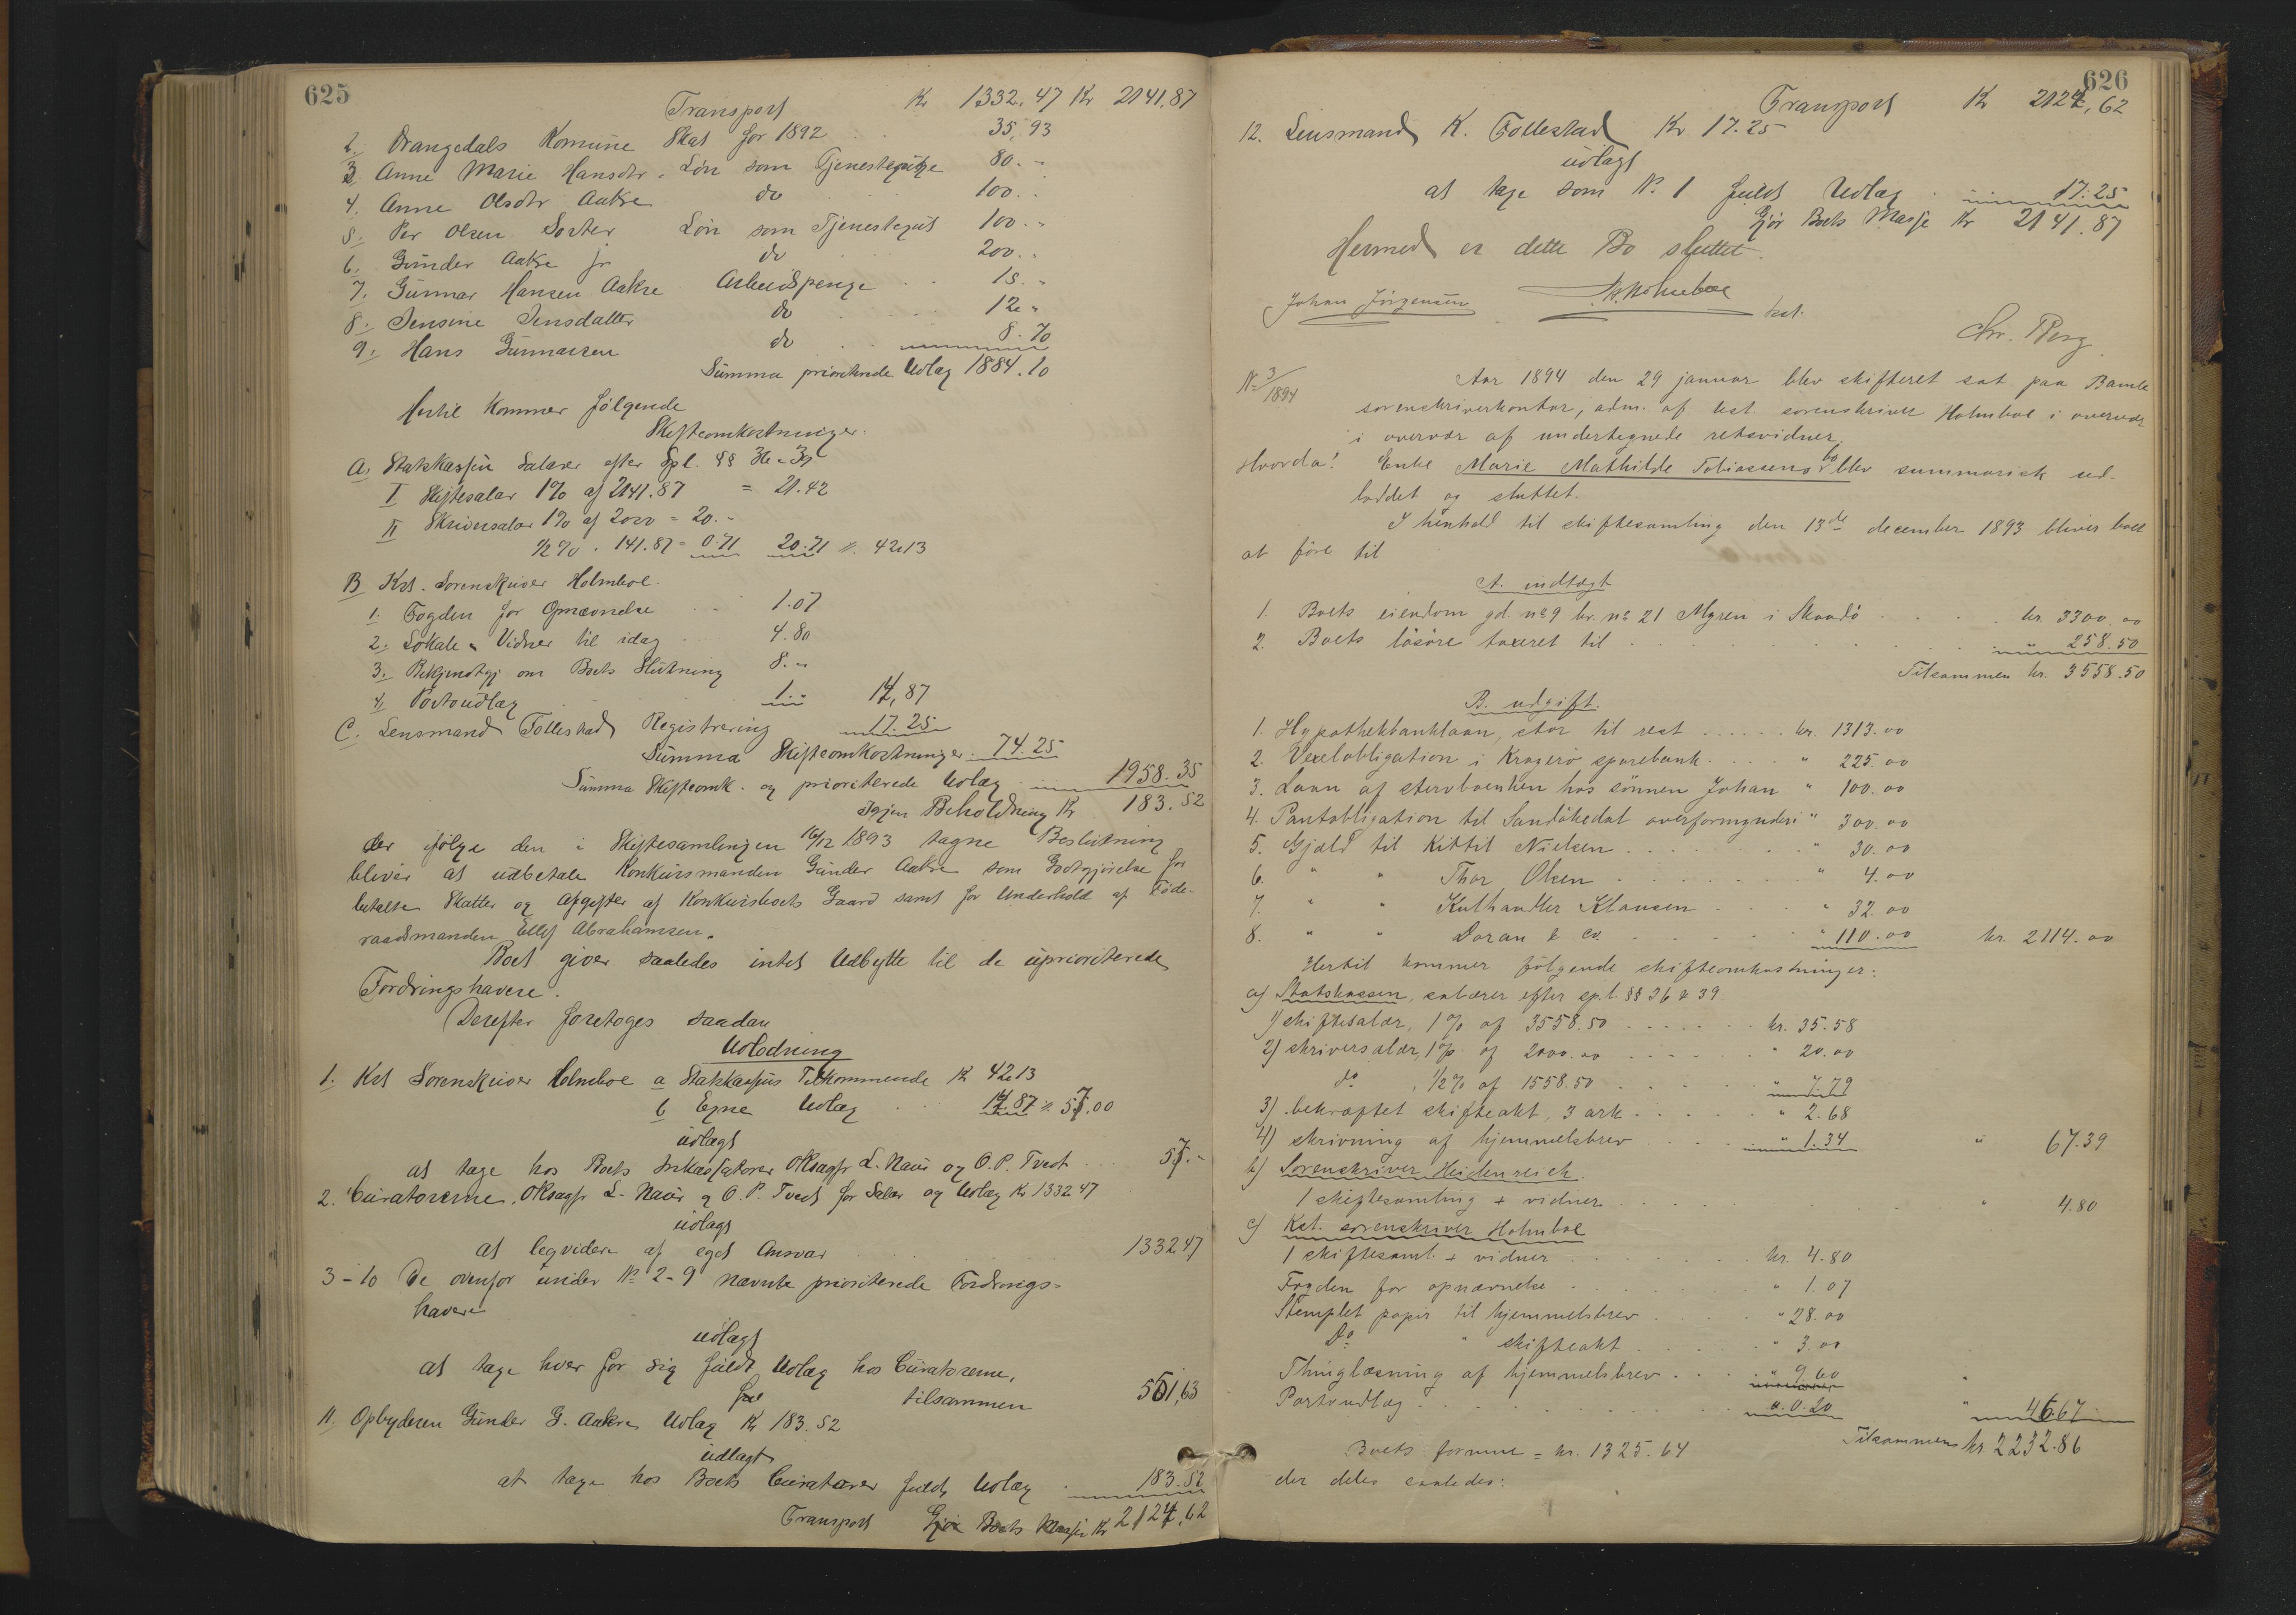 625
Transport Kr 1332.47 Kr 2141.87
2. Drangedals Komune Skat for 1892 35,93
3. Anne Marie Hansdtr. Løn som Tjenestepige 80.-
4. Anne Olsdtr Aakre do 100..
5. Per Olsen Løn som Tjenestegut 100.-
6. Gunder Aakre jr do 200..
7. Gunnar Hansen Aakre Arbeidspenge 15.-
8. Jensine Jensdatter do 12.-
9. Hans Gunnarsen do 8.70
Summa prioriterede Udlæg 1884.10
Hertil kommer følgende
Skifteomkostninger.
A. Statskassen Salærer efter Spl. §§ 36 - 39
I Skiftesalær 1% af 2141.87 = 21.42
II Skriversalær 1% af 2000 = 20.-
1/2% . 141.87 = 0.71 20.71 42.13
B Kst. Sorenskriver Holmboe.
1. Fogden for Opnævnelse 1.07
2. Lokale & Vidner til idag 4.80
3. Bekjendtgj om Boets Slutning 8.-
4. Portoudlæg 1.- 14,87
C. Lensmand Follestad Registrering 17.25
Summa Skifteomkostninger. 74.25
Summa Skifteomk. og prioriterede Udlæg 1958.35
Igjen Beholdning Kr 183.52
der ifølge den i Skiftesamlingen 16/12 1893 tagne Beslutning
bliver at udbetale Konkursmanden Gunder Aakre som Godtgjørelse for
betalte Skatter og Afgifter af Konkursboets Gaard samt for Underhold af Føde-
raadsmanden Ellef Abrahamsen.
Boet giver saaledes intet Udbytte til de uprioriterede
Fordringshavere.
Derefter foretoges saadan
Udlodning
1. Kst Sorenskriver Holmboe a Statskassens Tilkommende Kr 42.13
b Egne Udlæg 14.87 57.00
udlagt
at tage hos Boets Inkassatorer Oksagfr L. Naur og O.P. Tvedt 57.-
2. Curatorerne, Oksagfr L. Naur og O.P. Tvedt for Salær og Udlæg Kr 1332.47
udlagt
at leqvidere af eget Ansvar 1332.47
3-10 De ovenfor under No 2-9 nævnte prioriterede Fordrings-
havere
udlagt
at tage hver for sig fuldt Udlæg hos Curatorerne,
tilsammen 551,63
11. Opbyderen Gunder G. Aakre Udlæg Kr 183.52
udlagt
at tage hos Boets Curatorer fuldt Udlæg 183.52
Transport Gjør Boets Masse Kr 2124,62
626
Transport Kr 2124,62
12. Lensmand K. Follestad Kr 17.25
udlagt
at tage som No 1 fuldt Udlæg 17.25
Gjør Boets Masse Kr 2141.87
Hermed er dette Bo sluttet.
Johan Jørgensen Holmboe
kst.
Chr. Berg
No 3/1894
Aar 1894 den 29 januar blev skifteret sat paa Bamle
sorenskriverkontor, adm. af kst. sorenskriver Holmboe i overvær
i overvær af undertegnede retsvidner.
Hvorda: Enke Marie Mathilde Tobiassens bo blev summarisk ud-
loddet og sluttet.
I henhold til skiftesamling den 13de december 1893 bliver boet
at føre til
A. indtægt
1. Boets eiendom gd. no 9 br. no 21 Myren i Skaadø kr. 3300.00
2. Boets løsøre taxeret til " 258.50
Tilsammen kr. 3558.50
B. udgift.
1. Hypothekbanklaan, stor til rest kr. 1313.00
2. Vexelobligation i Kragerø sparebank " 225.00
3. Laan af stervboenken hos sønnen Johan " 100.00
4. Pantobligation til Sandøkedal overformynderi " 300.00
5. Gjæld til Kittil Nielsen " 30.00
6. " " Thor Olsen " 4.00
7. " " Kulhandler Klausen " 32.00
8. " " Doran & Co. " 110.00 kr. 2114.00
Hertil kommer følgende skifteomkostninger:
a) Statskassen, salærer efter spl. §§ 36 & 39
1) skiftesalær, 1% af 3558.50 kr. 35.58
2) skriversalær, 1% af 2000.00 " 20.00
do , 1/2% af 1558.50 " 7.79
3) bekræftet skifteakt, 3 ark " 2.68
4) skrivning af hjemmelsbrev " 1.34 " 67.39
b) Sorenskriver Heidenreich.
1 skiftesamling + vidner " 4.80
c) Kst. sorenskriver Holmboe
1 skiftesaml. + vidner kr. 4.80
Fogden for opnævnelse " 1.07
Stemplet papir til hjemmelsbrev " 28.00
Do " skifteakt " 3.00
Thinglæsning af hjemmelsbrev " 9.60
Portoudlæg " 0.20 " 46.67
Tilsammen kr 2232.86
Boets formue = kr. 1325.64
der deles saaledes: